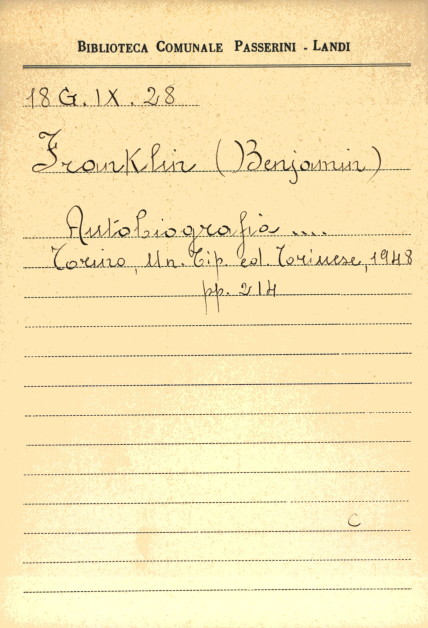 BIBLIOTECA COMUNALE PASSERINI - LANDI
18 G. IX. 28
Franklin (Benjamin)
Autobiografia ....
Torino, Un. Tip. ed. Torinese, 1948
pp. 214
C